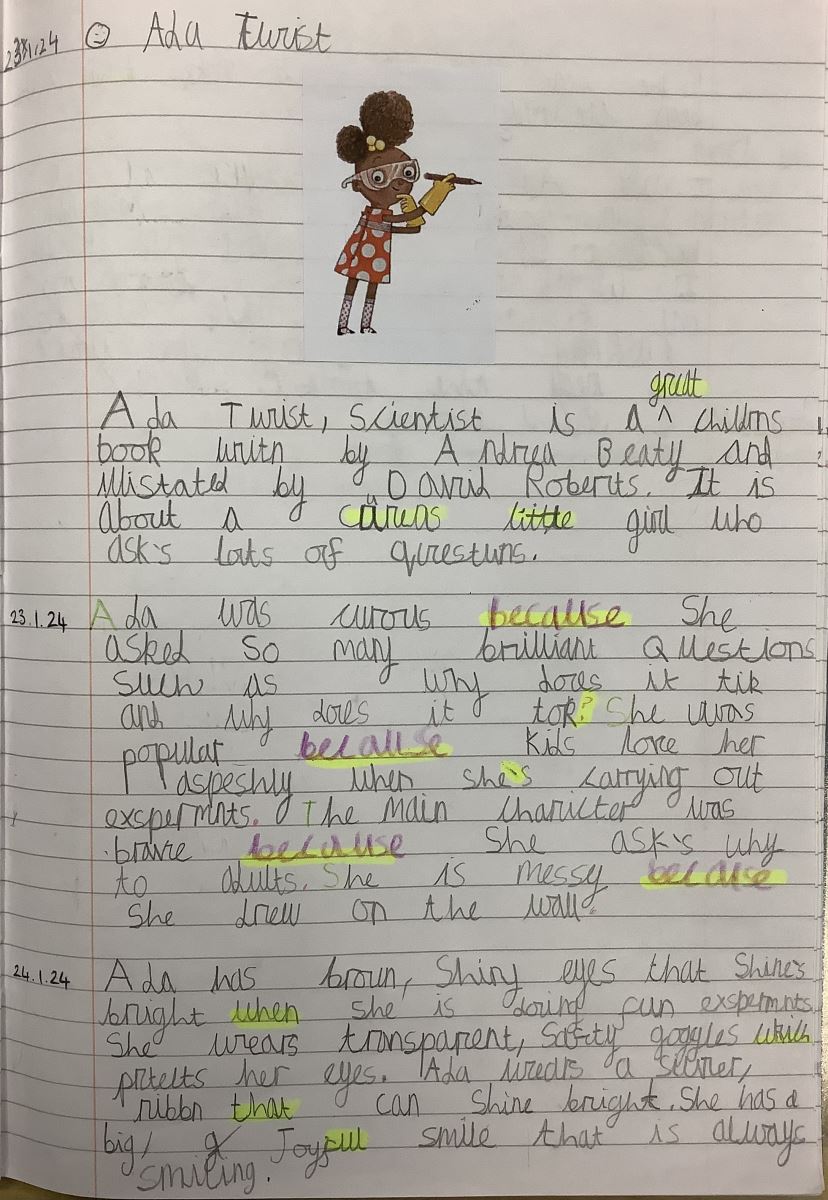 23.1.24 ☺ Ada Twist
great
Ada Twist, Scientist is a ^ childrns
book writn by Andrea Beaty and
illistated by David Roberts. It is
about a careas little girl who
ask's lots of questuns.
23.1.24 Ada was curous because She
asked so many brilliant Questions
such as why does it tik
and why does it tok? She was
popular because kids love her
aspeshly when she's carrying out
expermnts. The main charicter was
brave because She ask's why
to adults. She is messy because
She drew on the wall.
24.1.24 Ada has broun, Shiny eyes that Shine's
bright when she is doing fun expermnts.
She wears transparent, Safty goggles which
prtetts her eyes. Ada wears a silver,
ribbn that can shine bright. She has a
big, Joyful smile that is always
smiling.